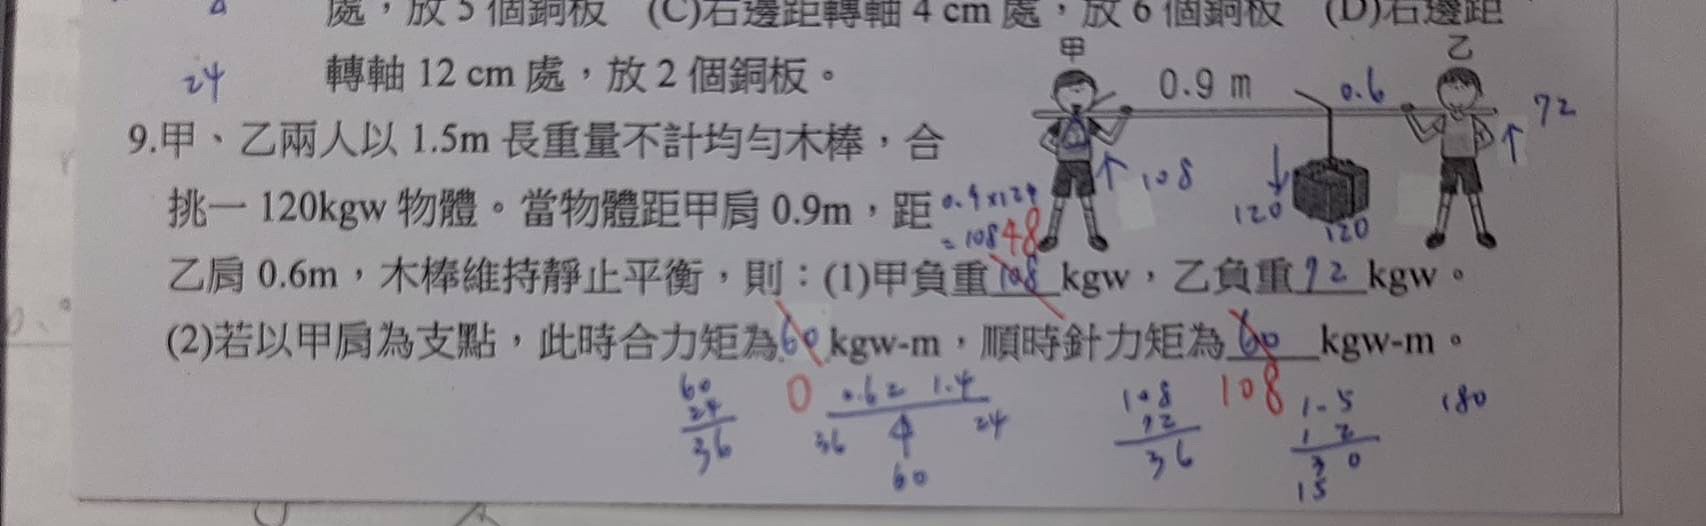 處，放 5 個銅板 (C)右邊距轉軸 4 cm 處，放 6 個銅板 (D)右邊距
24
轉軸 12 cm 處，放 2 個銅板。
甲
乙
0.9 m
0.6
72
9.甲、乙兩人以 1.5m 長重量不計均勻木棒，合
↑ 108
↓
120
120
↑
挑一 120kgw 物體。當物體距甲肩 0.9m，距
= 108
48
乙肩 0.6m，木棒維持靜止平衡，則：(1)甲負重 108 kgw，乙負重 72 kgw。
(2)若以甲肩為支點，此時合力矩為 60 kgw-m，順時針力矩為 60 kgw-m。
0
108
60
24
36
1.4
36
24
60
108
72
36
1.5
1 2
3 0
15
180